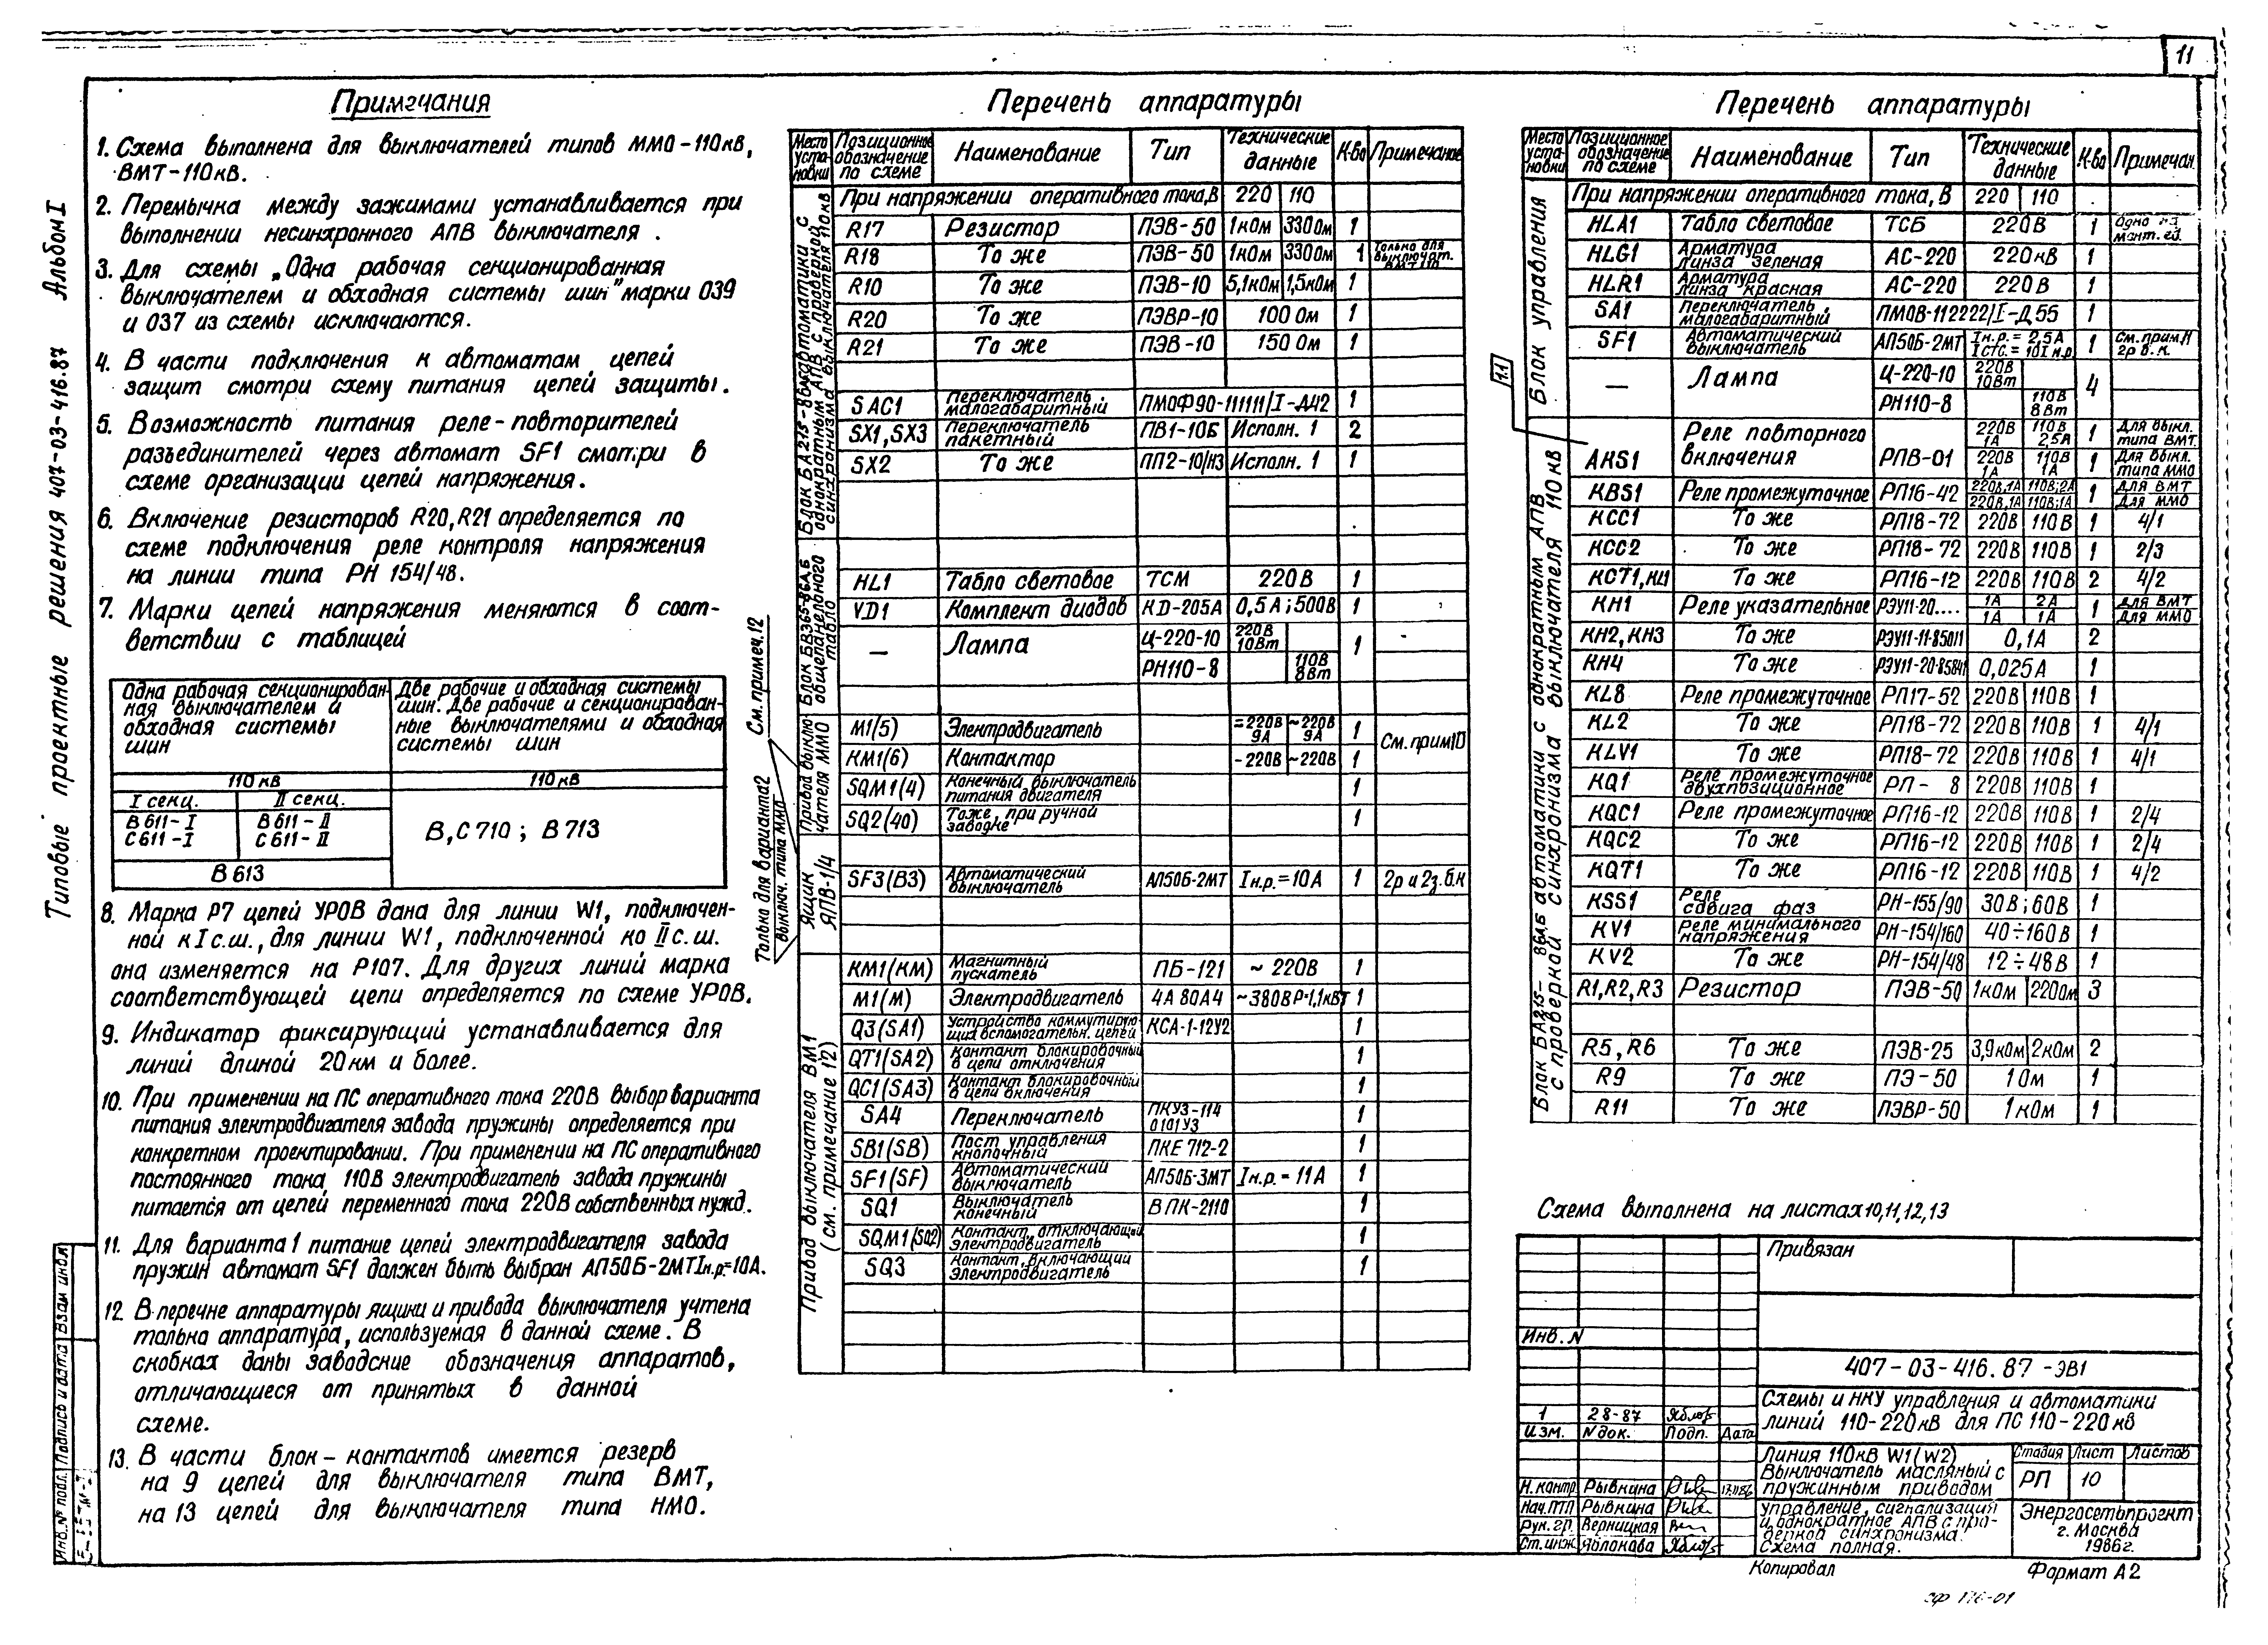 11
Типовые проектные решения 407-03-416.87 Альбом I
Примечания
1. Схема выполнена для выключателей типов ММО-110кВ,
ВМТ-110кВ.
2. Перемычка между зажимами устанавливается при
выполнении несинхронного АПВ выключателя.
3. Для схемы „Одна рабочая секционированная
выключателем и обходная системы шин" марки 039
и 037 из схемы исключаются.
4. В части подключения к автоматам цепей
защит смотри схему питания цепей защиты.
5. Возможность питания реле-повторителей
разъединителей через автомат SF1 смотри в
схеме организации цепей напряжения.
6. Включение резисторов R20, R21 определяется по
схеме подключения реле контроля напряжения
на линии типа РН 154/48.
7. Марки цепей напряжения меняются в соот-
ветствии с таблицей
Одна рабочая секционирован-
ная выключателем и
обходная системы
шин
Две рабочие и обходная системы
шин. Две рабочие и секционирован-
ные выключателями и обходная
системы шин
110кВ 110кВ
I секц. II секц.
В611-I В611-II
С611-I С611-II
В,С710; В713
В613
8. Марка Р7 цепей УРОВ дана для линии W1, подключен-
ной к I с.ш., для линии W1, подключенной ко II с.ш.
она изменяется на Р107. Для других линий марка
соответствующей цепи определяется по схеме УРОВ.
9. Индикатор фиксирующий устанавливается для
линий длиной 20км и более.
10. При применении на ПС оперативного тока 220В выбор варианта
питания электродвигателя завода пружины определяется при
конкретном проектировании. При применении на ПС оперативного
постоянного тока 110В электродвигатель завода пружины
питается от цепей переменного тока 220В собственных нужд.
11. Для варианта 1 питание цепей электродвигателя завода
пружин автомат SF1 должен быть выбран АП50Б-2МТ Iн.р.=10А.
12. В перечне аппаратуры ящики и привода выключателя учтена
только аппаратура, используемая в данной схеме. В
скобках даны заводские обозначения аппаратов,
отличающиеся от принятых в данной
схеме.
13. В части блок-контактов имеется резерв
на 9 цепей для выключателя типа ВМТ,
на 13 цепей для выключателя типа НМО.
Перечень аппаратуры
Место установки Позиционное обозначение по схеме Наименование Тип Технические данные К-во Примечание
При напряжении оперативного тока, В 220 110
Блок БА215-86АБ автоматики с однократным АПВ с проверкой синхронизма выключателя 110кВ
R17 Резистор ПЭВ-50 1кОм 330Ом 1
R18 То же ПЭВ-50 1кОм 330Ом 1 Только для выключат. ВМТ 110
R10 То же ПЭВ-10 5,1кОм 1,5кОм 1
R20 То же ПЭВР-10 100 Ом 1
R21 То же ПЭВ-10 150 Ом 1
SAC1 Переключатель малогабаритный ПМОФ90-111111/I-Д42 1
SX1, SX3 Переключатель пакетный ПВ1-10Б Исполн. 1 2
SX2 То же ПП2-10/Н3 Исполн. 1 1
Блок БВ365-86А,Б общепанельного табло
HL1 Табло световое ТСМ 220В 1
VD1 Комплект диодов КД-205А 0,5А; 500В 1
— Лампа Ц-220-10 220В 10Вт 1
РН110-8 110В 8Вт
См. примеч. 12
Привод выключателя ММО
M1(5) Электродвигатель =220В 9А ~220В 9А 1 См. прим 10
KM1(6) Контактор -220В ~220В 1
SQM1(4) Конечный выключатель питания двигателя 1
SQ2(40) То же, при ручной заводке 1
Только для варианта 2
выключ. типа ММО
Ящик ЯПВ-1/4
SF3(B3) Автоматический выключатель АП50Б-2МТ Iн.р.=10А 1 2р и 2з.б.к
Привод выключателя ВМ1 (см. примечание 12)
KM1(KM) Магнитный пускатель ПБ-121 ~220В 1
M1(M) Электродвигатель 4А80А4 ~380В Р=1,1кВт 1
Q3(SA1) Устройство коммутирующих вспомогательн. цепей КСА-1-12У2 1
QT1(SA2) Контакт блокировочный в цепи отключения 1
QC1(SA3) Контакт блокировочный в цепи включения 1
SA4 Переключатель ПКУ3-114 0101У3 1
SB1(SB) Пост управления кнопочный ПКЕ 712-2 1
SF1(SF) Автоматический выключатель АП50Б-3МТ Iн.р.=11А 1
SQ1 Выключатель конечный ВПК-2110 1
SQM1(SQ2) Контакт, отключающий электродвигатель 1
SQ3 Контакт, включающий электродвигатель 1
Перечень аппаратуры
Место установки Позиционное обозначение по схеме Наименование Тип Технические данные К-во Примечан.
При напряжении оперативного тока, В 220 110
Блок управления
HLA1 Табло световое ТСБ 220В 1 Одно на монт. ед.
HLG1 Арматура линза зеленая АС-220 220кВ 1
HLR1 Арматура линза красная АС-220 220В 1
SA1 Переключатель малогабаритный ПМОВ-112222/I-Д55 1
SF1 Автоматический выключатель АП50Б-2МТ Iн.р.=2,5А Iстс.=10Iн.р 1 См. прим. 11 2р б.к.
— Лампа Ц-220-10 220В 10Вт 4
РН110-8 110В 8Вт
1.1
Блок БА215-86АБ автоматики с однократным АПВ с проверкой синхронизма выключателя 110кВ
AKS1 Реле повторного включения РПВ-01 220В 1А 110В 2,5А 1 Для выкл. типа ВМТ
220В 1А 110В 1А 1 Для выкл. типа ММО
KBS1 Реле промежуточное РП16-42 220В,1А 110В;2А 1 Для ВМТ
220В,1А 110В;1А Для ММО
KCC1 То же РП18-72 220В 110В 1 4/1
KCC2 То же РП18-72 220В 110В 1 2/3
KCT1, KL1 То же РП16-12 220В 110В 2 4/2
KH1 Реле указательное РЭУ11-20.... 1А 2А 1 Для ВМТ
1А 1А Для ММО
KH2, KH3 То же РЭУ11-11-85011 0,1А 2
KH4 То же РЭУ11-20-85841 0,025А 1
KL8 Реле промежуточное РП17-52 220В 110В 1
KL2 То же РП18-72 220В 110В 1 4/1
KLV1 То же РП18-72 220В 110В 1 4/1
KQ1 Реле промежуточное двухпозиционное РП-8 220В 110В 1
KQC1 Реле промежуточное РП16-12 220В 110В 1 2/4
KQC2 То же РП16-12 220В 110В 1 2/4
KQT1 То же РП16-12 220В 110В 1 4/2
KSS1 Реле сдвига фаз РН-155/90 30В; 60В 1
KV1 Реле минимального напряжения РН-154/160 40÷160В 1
KV2 То же РН-154/48 12÷48В 1
R1, R2, R3 Резистор ПЭВ-50 1кОм 220Ом 3
R5, R6 То же ПЭВ-25 3,9кОм 2кОм 2
R9 То же ПЭ-50 1 Ом 1
R11 То же ПЭВР-50 1 кОм 1
Схема выполнена на листах 10, 11, 12, 13
Привязан
Инв. N
407-03-416.87-ЭВ1
Схемы и НКУ управления и автоматики
линий 110-220кВ для ПС 110-220кВ
1 28-87
Изм. N док. Подп. Дата
Линия 110кВ W1(W2)
Выключатель масляный с
пружинным приводом
Стадия Лист Листов
РП 10
Н.контр. Рывкина
Нач.ПТП Рывкина
Рук.гр. Верницкая
Ст.инж. Яблокова
Управление, сигнализация
и однократное АПВ с про-
веркой синхронизма.
Схема полная.
Энергосетьпроект
г. Москва
1986г.
Копировал Формат А2
Инв. № подл. Подпись и дата Взам инв.№